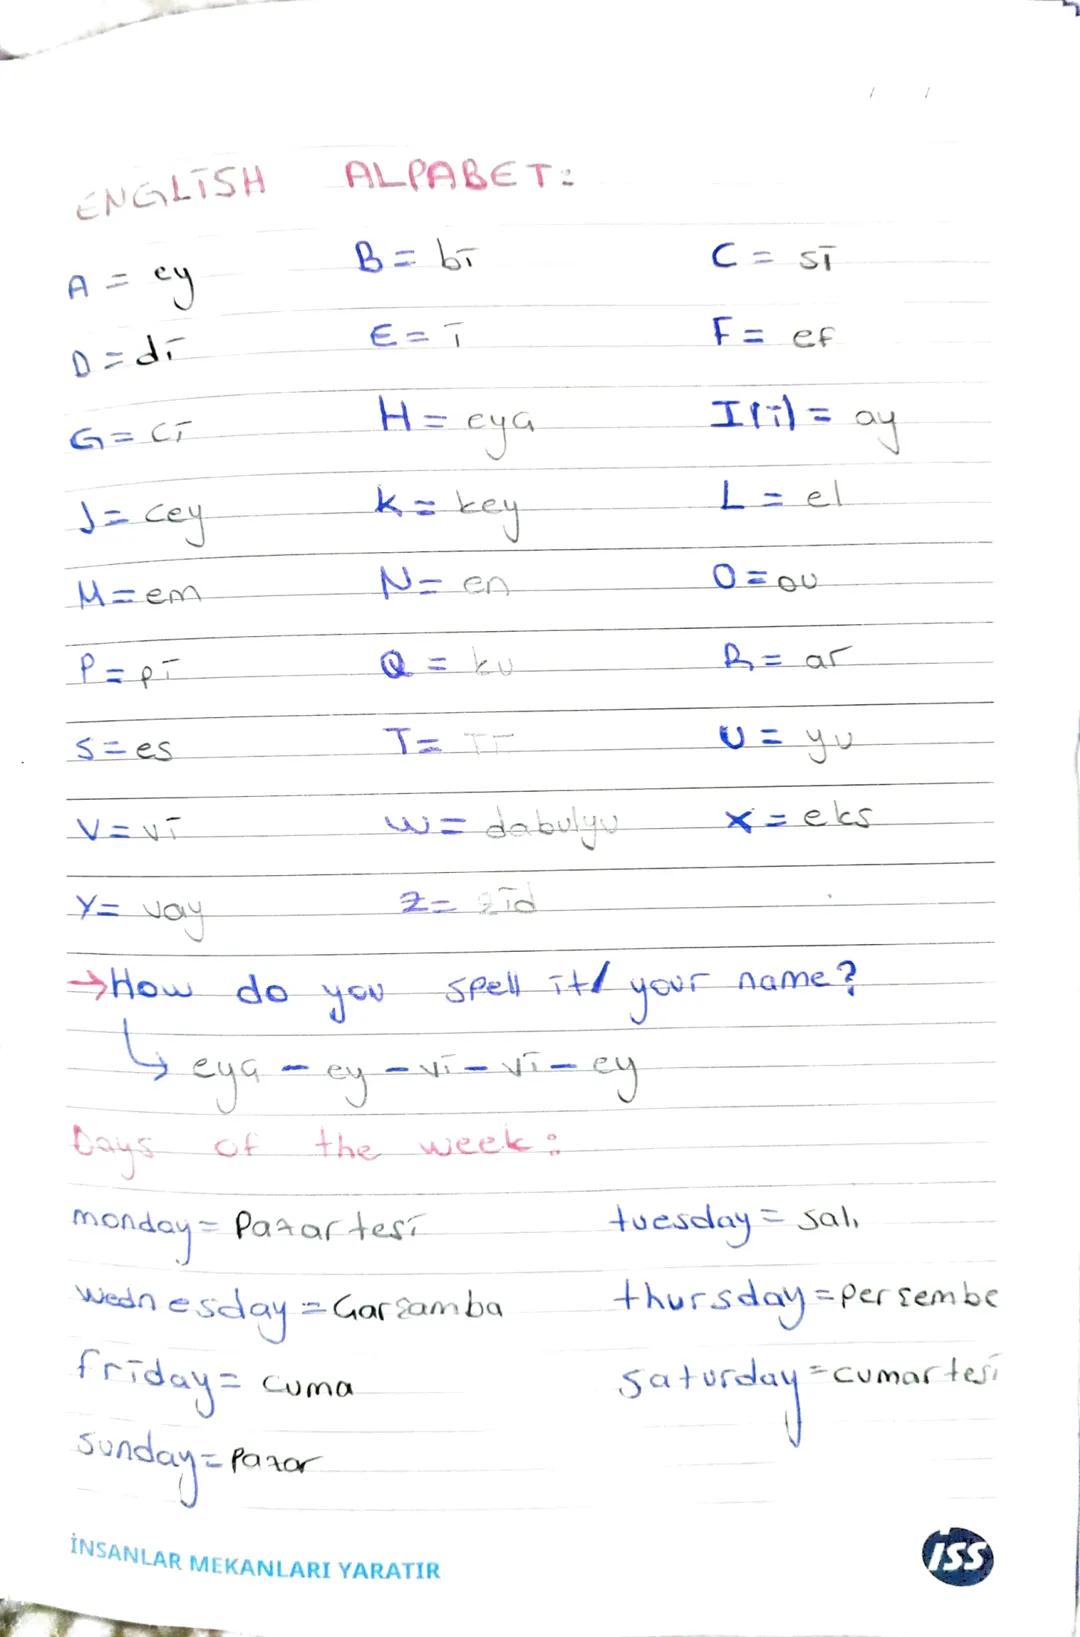 ENGLİSH ALPABET:
A = ey B = bi C = si
D = di E = i F = ef
G = ci H = eyç I(i) = ay
J = cey K = key L = el
M = em N = en O = ou
P = pi Q = ku R = ar
S = es T = Ti U = yu
V = vi W = dabulyu X = eks
Y = vay Z = zid
→ How do you spell it/ your name?
↳ eyç - ey - vi - vi - ey
Days of the week:
monday = Pazartesi tuesday = salı
wednesday = Çarşamba thursday = perşembe
friday = cuma saturday = cumartesi
sunday = pazar
İNSANLAR MEKANLARI YARATIR
ISS